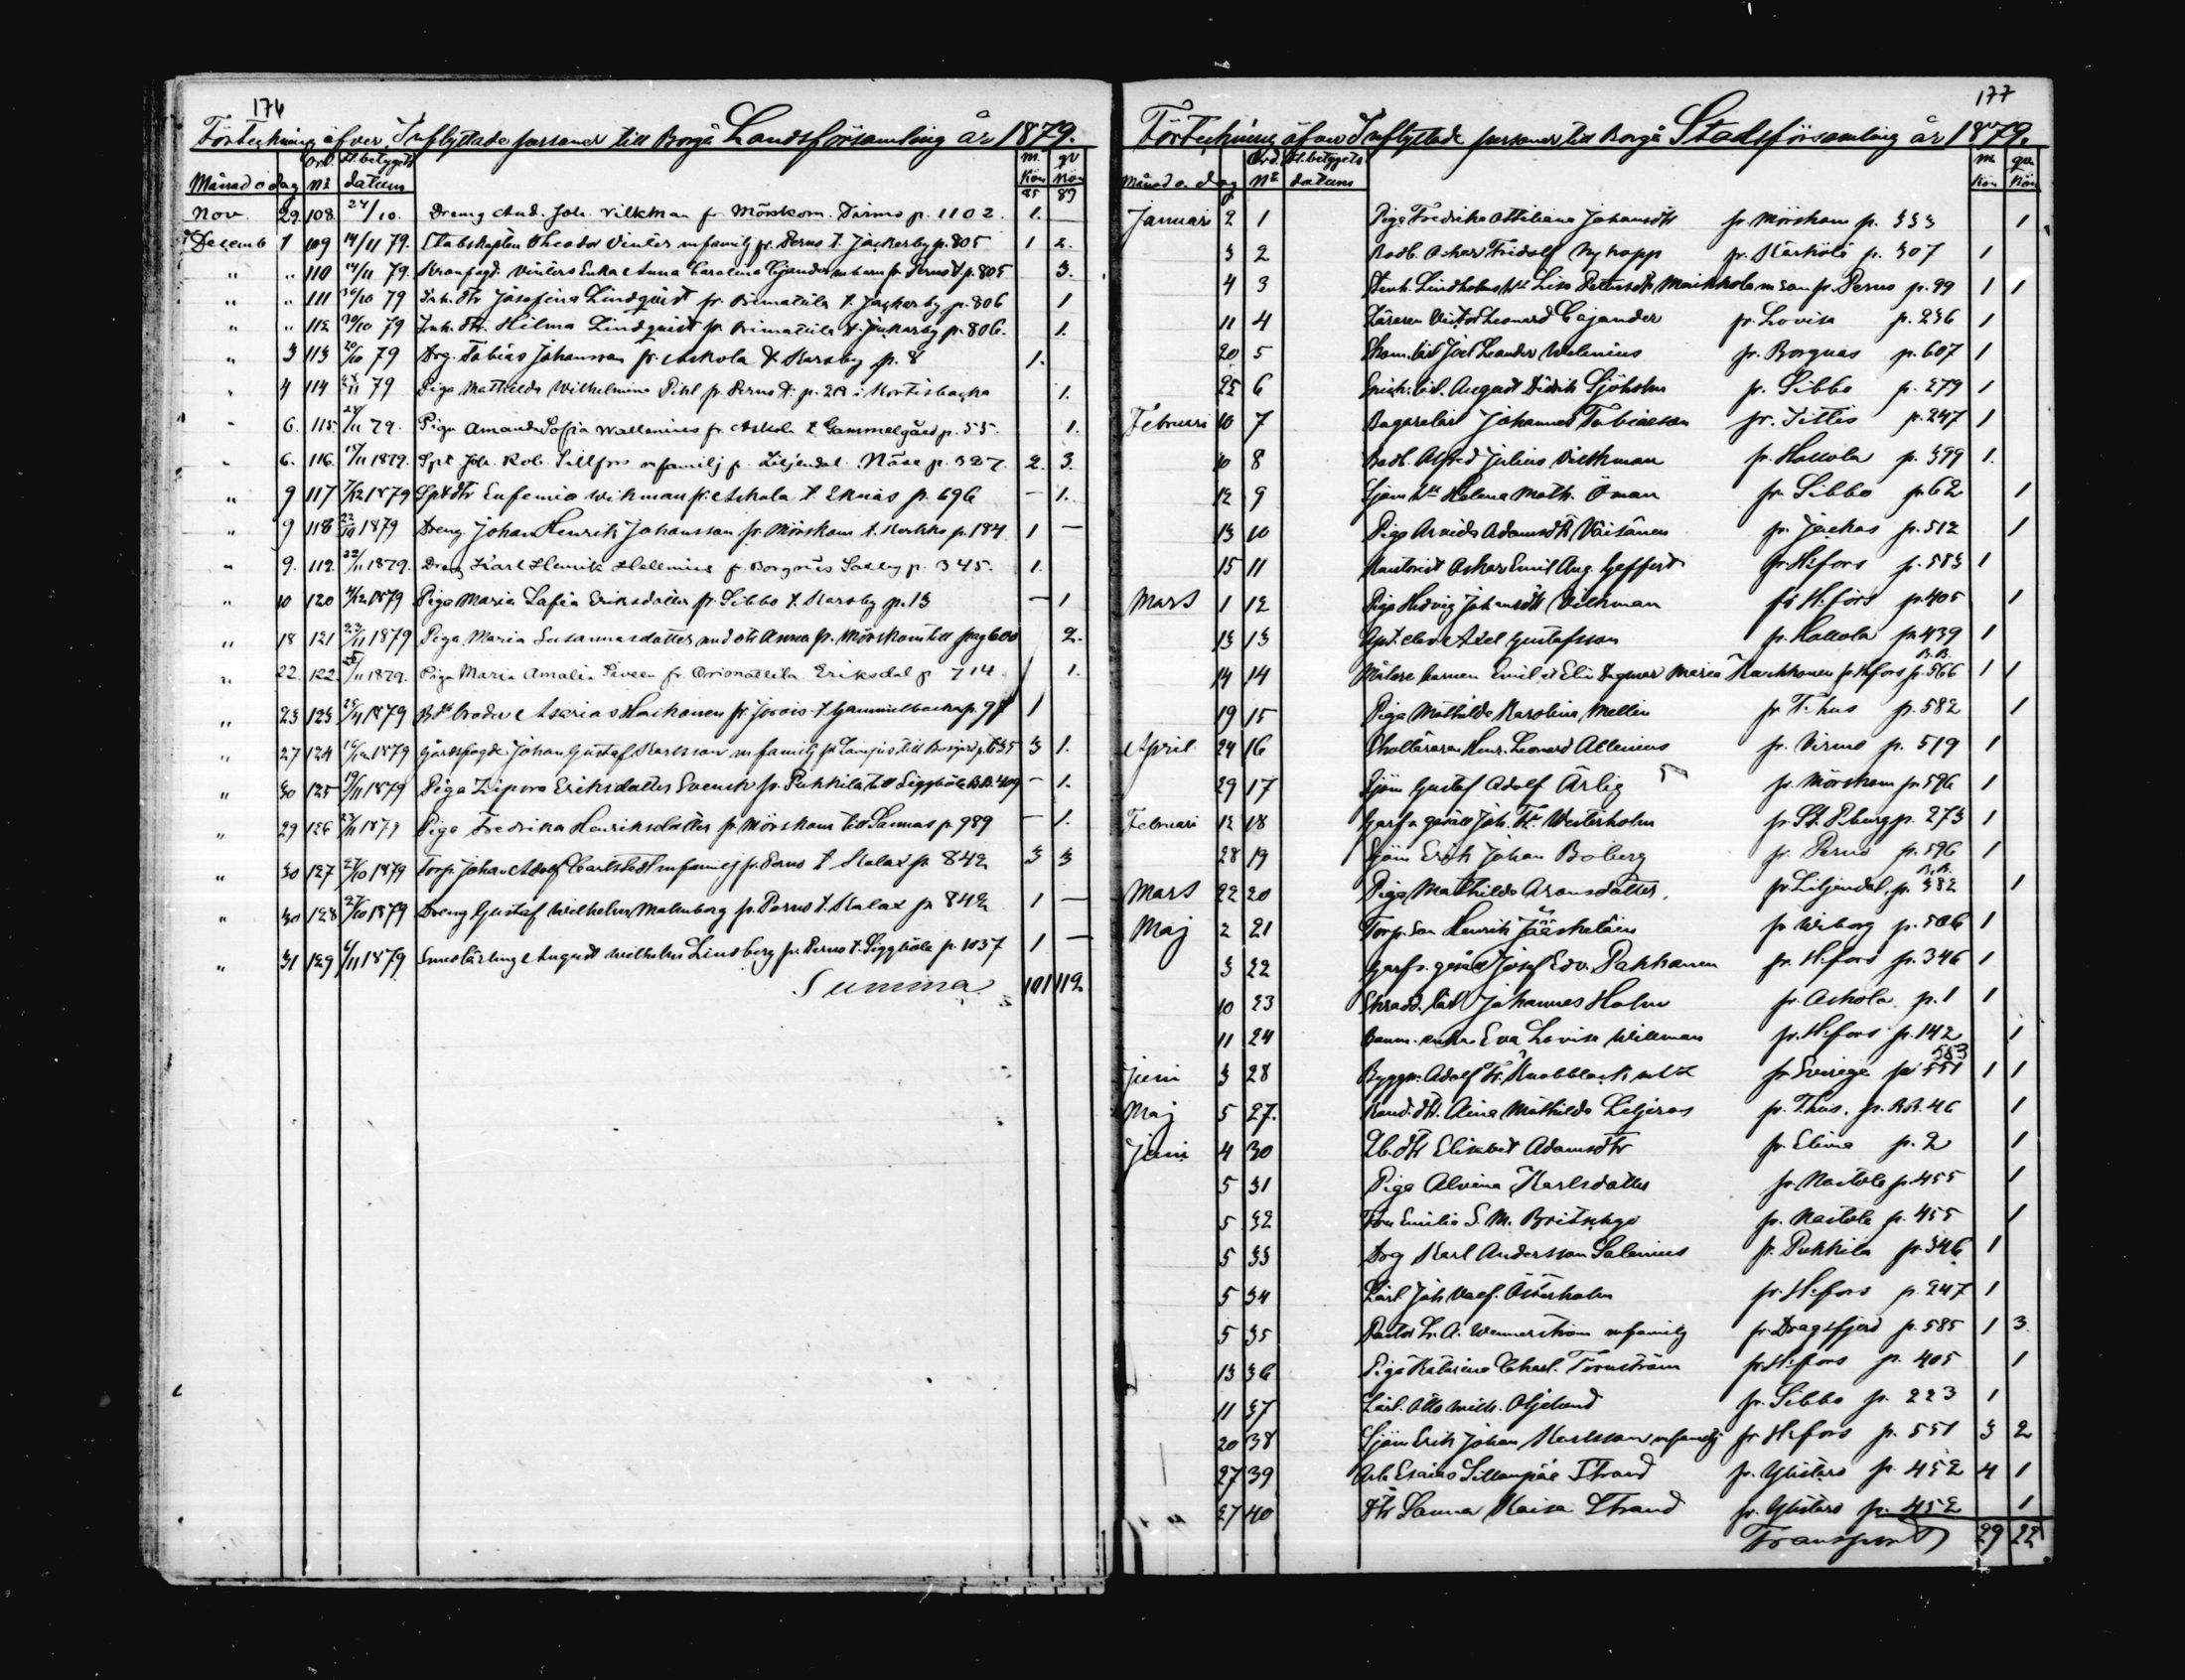 176
Förteckning öfver Inflyttade personer till Borgå Landsförsamling år 1879.
Månad o dag Ord. № Fl. betygets datum m. Kön qv Kön
85 89
Nov. 29. 108. 24/10. Dreng And. Joh. Vilkman fr Mörskom. p. 1102. 1.
Decemb 1 109 14/11 79. Stabskapten Theodor Vinter m familj fr. Perno t. Jackarby p. 805 1 2.
" " 110 14/11 79. Kronfogd. Vinters Enka Anna Carolina Cajander m barn fr Perno t p. 805 3.
" " 111 30/10 79 Inh. dtr Josefina Lindqvist fr. Orimatila t. Jackarby p. 806 1
" " 112 30/10 79 Inh. dtr. Hilma Lindqvist fr. Orimatila t. Jackarby p. 806. 1.
" 3 113 20/10 79 Drg. Tobias Johansson fr. Askola t. Karsby p. 8 1.
" 4 114 79 Piga Mathilda Wilhelmina Pihl fr. Perno t. p. 28 i Kortisbacka 1.
" 6. 115. 24/11 79. Piga Amanda Sofia Wallenius fr. Askola t Gammelgård p. 55. 1.
" 6. 116. 15/11 1879. Spt Joh. Rob. Sillfors m familj fr. Liljendal. Näse p. 327. 2. 3.
" 9 117 7/12 1879 Spt dtr Eufemia Wikman fr. Askola t. Eknäs p. 696 – 1.
" 9 118 22/10 1879 Dreng Johan Henrik Johansson fr. Mörskom t. Kerkko p. 184 1 –
" 9. 119. 22/11 1879. Dreng Karl Henrik Hellenius fr. Borgnäs Saxby p. 345. 1.
" 10 120 4/12 1879 Piga Maria Sofia Eriksdotter fr. Sibbo t. Karsby p. 13 – 1
" 18 121 23/11 1879 Piga Maria Susannasdotter med dtr Anna fr. Mörskom till pag 600 2.
" 22. 122. /11 1879. Piga Maria Amalia fr. Orimattila Eriksdal p 714. 1.
" 23 123 25/4 1879 Bds broder Asarias Haikonen fr. Jorois t. Gammelbacka p. 97 1
" 27 124 16/12 1879 Gårdsfogde Johan Gustaf Karlsson m familj fr Lampis till p. 635 3 1.
" 30 125 19/11 1879 Piga Zipora Eriksdotter Svensk fr. Pukkila till Siggböle B.B. 409 – 1.
" 29 126 27/11 1879 Piga Fredrika Henriksdotter fr. Mörskom till Sannas p. 989 – 1.
" 30 127 27/10 1879 Torp. Johan Adolf Carlstedt m familj fr. Perno t Kalax p. 842 3 3
" 30 128 27/10 1879 Dreng Gustaf Wilhelm Malmberg fr. Perno t. Kalax p. 842 1 –
" 31 129 6/11 1879 Smedlärling August Wilhelm Lindberg fr. Perno t. Siggböle p. 1037 1 –
Summa 101 112
177
Förteckning öfver Inflyttade personer till Borgå Stadsförsamling år 1879.
Månad o. dag Ord. № Fl. betygets datum m Kön qv. Kön
Januari 2 1 Piga Fredrika Ottiliana Johansdtr fr. Mörskom p. 333 1
3 2 Bodb. Oskar Fridolf Nykopp fr. Kärkölä p. 307 1
4 3 Lindholms hu Lisa m son fr. Perno p. 99 1 1
11 4 Läraren Victor Leonard Cajander fr. Lovisa p. 236 1
20 5 Skom. lärl Joel Leander Walenius fr. Borgnäs p. 607 1
25 6 Snick. lärl. August Didrik Sjöholm fr. Sibbo p. 279 1
Februari 10 7 Bagarelärl Johannes Tobiasson fr. Jittis p. 247 1
10 8 Bodb. Alfred Julius Vilkman fr. Hollola p. 399 1.
12 9 Sjöm hu Helena Math. Öman fr. Sibbo p. 62 1
13 10 Piga Arvida Adamsdtr Väisänen fr. Jackas p. 512 1
15 11 Kantorist Oskar Emil Aug. Geffert fr. H:fors p. 583 1
Mars 1 12 Piga Hedvig Johansdtr Vilkman fr H:fors p. 405 1
13 13 elev Axel Gustafsson fr. Hollola p. 439 1
14 14 Målare barnen Emil o Elin Dagmar Maria Kaukkonen fr. H:fors B.B. p. 566 1 1
19 15 Piga Mathilda Karolina Mellin fr. T.hus p. 582 1
April 24 16 Skolläraren Henr. Leonard Allenius fr. Virmo p. 519 1
29 17 Sjöm Gustaf Adolf Ärlig fr. Mörskom p. 596 1
Februari 12 18 Garfv. gesäll Joh. Fr. Westerholm fr. St. P.burg p. 273 1
28 19 Sjöm Erik Johan Boberg fr. Perno p. 596 1
Mars 22 20 Piga Mathilda Aronsdotter. fr. Liljendal, B.B. p. 382 1
Maj 2 21 Torp. son Henrik Jääskeläin fr Wiborg p. 506 1
3 22 Garfv. gesäll Josef Edv. Pakkanen fr. H:fors p. 346 1
10 23 Skradd. lärl Johannes Holm fr. Askola p. 1 1
11 24 enka Eva Lovisa Willman fr. H:fors p. 142 1
Juni 3 28 Byggm. Adolf Fr. Knobblock m hu fr Sverige p. 551 583 1 1
Maj 5 27. Kand. dtr. Aina Mathilda Liljeros fr. T.hus. p. B.B. 46 1
Juni 4 30 dtr Elisabet Adamsdtr fr. Elima p. 2 1
5 31 Piga Alvina Karlsdotter fr. Nastola p. 455 1
5 32 Fru Emilia S. M. Britschgi fr. Nastola p. 455 1
5 33 Drg Karl Andersson Salenius fr. Pukkila p. 346 1
5 34 Lärl. Joh. Österholm fr. H:fors p. 247 1
5 35 Pastor Fr. A. Wennerström m familj fr. Dragsfjerd p. 585 1 3.
13 36 Piga Katarina Charl. Törnström fr. H:fors p. 405 1
11 37 Lärl. Otto Wilh. Öljelund fr. Sibbo p. 223 1
20 38 Sjöm Erik Johan Karlsson m familj fr H:fors p. 551 3 2
27 39 Arb Esaias Sillanpää Strand fr. Ylistaro p. 452 4 1
27 40 Dtr Sanna Kaisa Strand fr. Ylistaro p. 452 1
Transport 29 22